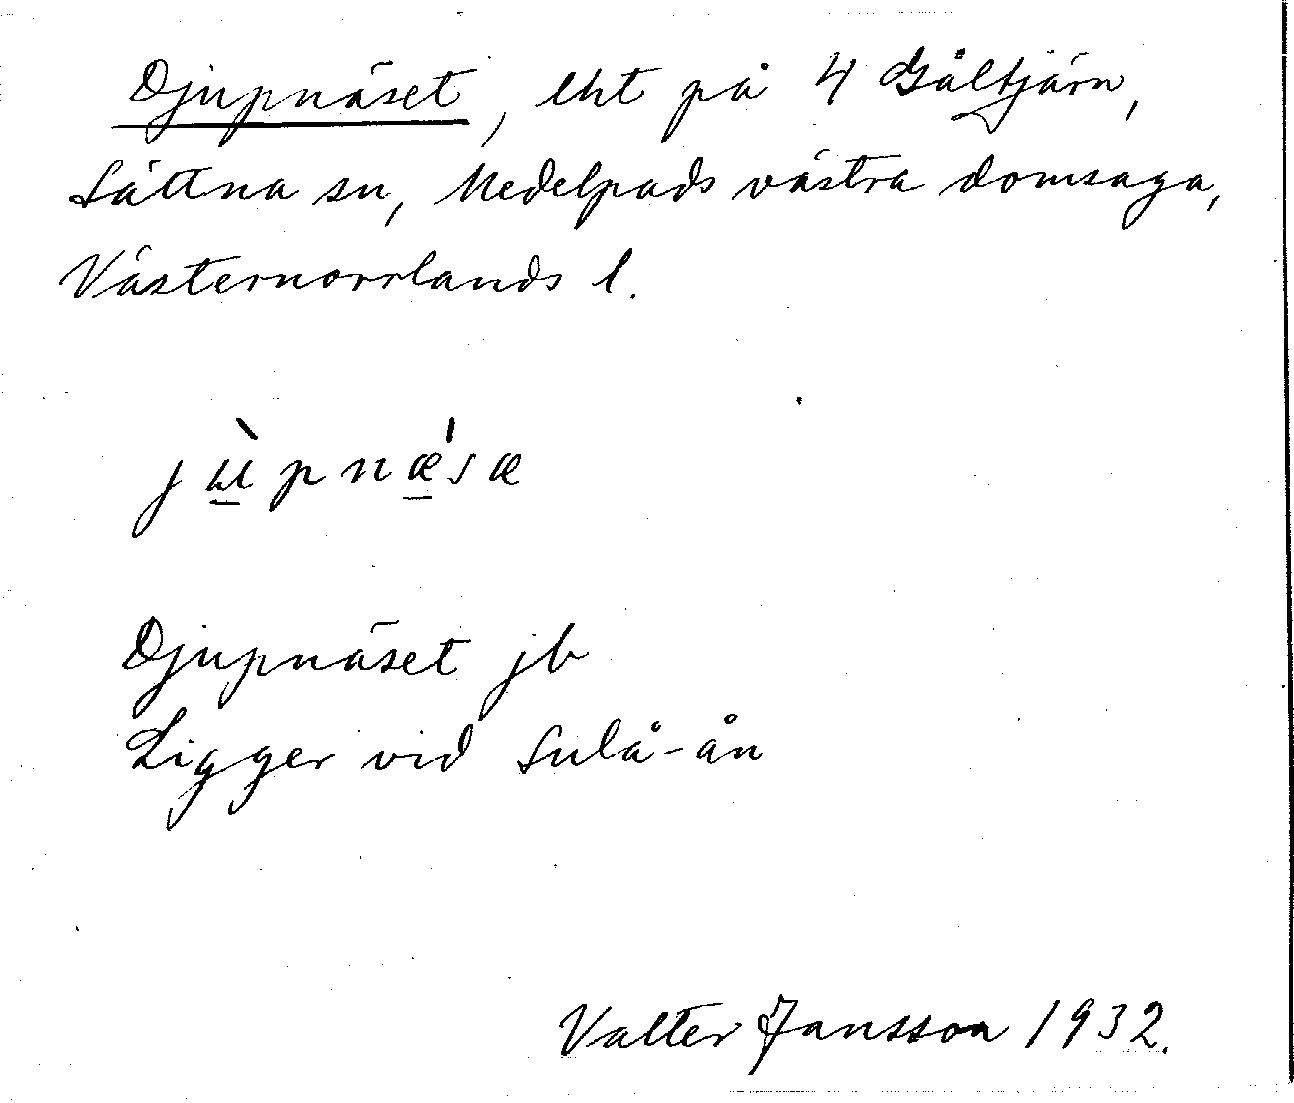 Djupnäset, lht på 4 Gåltjärn,
Sättna sn, Medelpads västra domsaga,
Västernorrlands l.
jù̱pnǽ̱sæ
Djupnäset jb
Ligger vid Sulå-ån
Valter Jansson 1932.